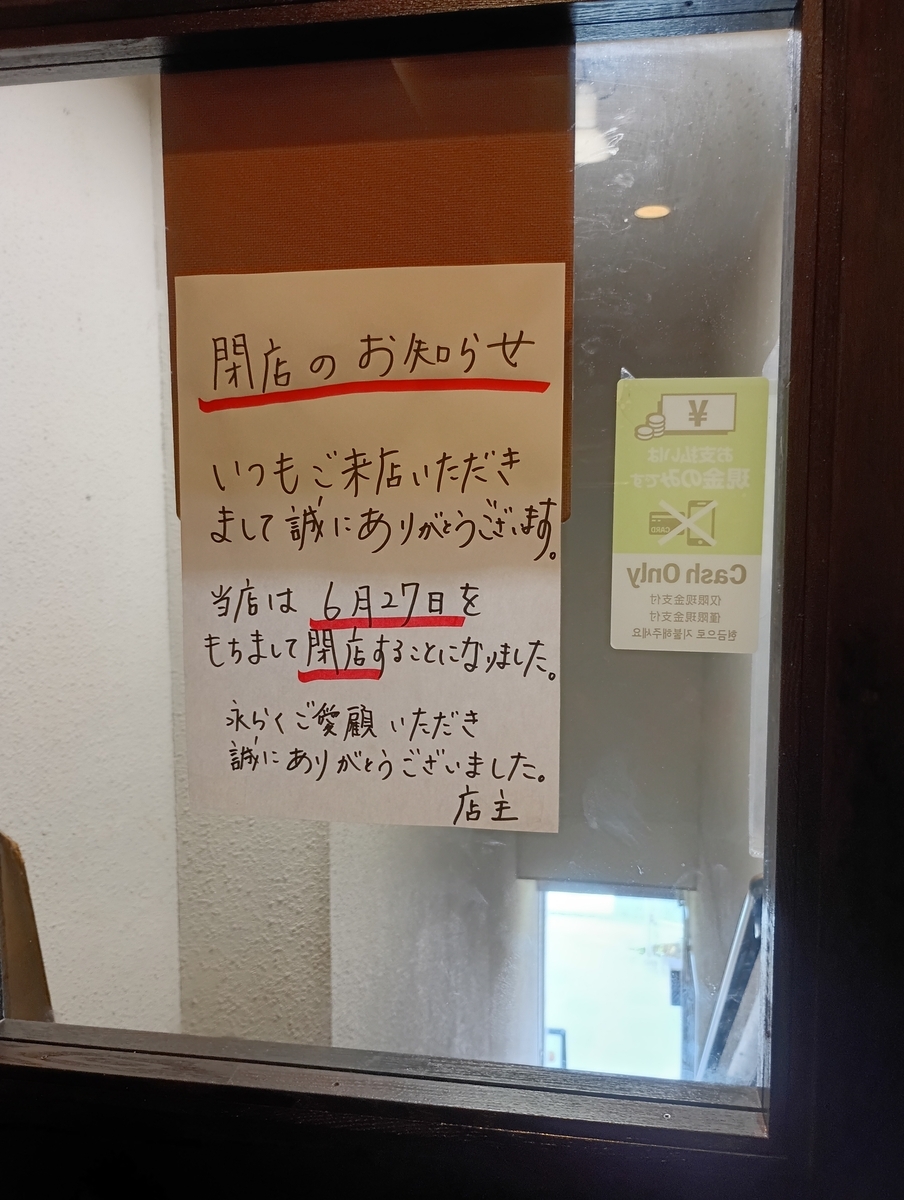 閉店のお知らせ
いつもご来店いただき
まして誠にありがとうございます。
当店は6月27日を
もちまして閉店することになりました。
永らくご愛顧いただき
誠にありがとうございました。
店主
¥
お支払いは
現金のみです
CARD
Cash Only
仅限现金支付
僅限現金支付
현금으로 지불해주세요